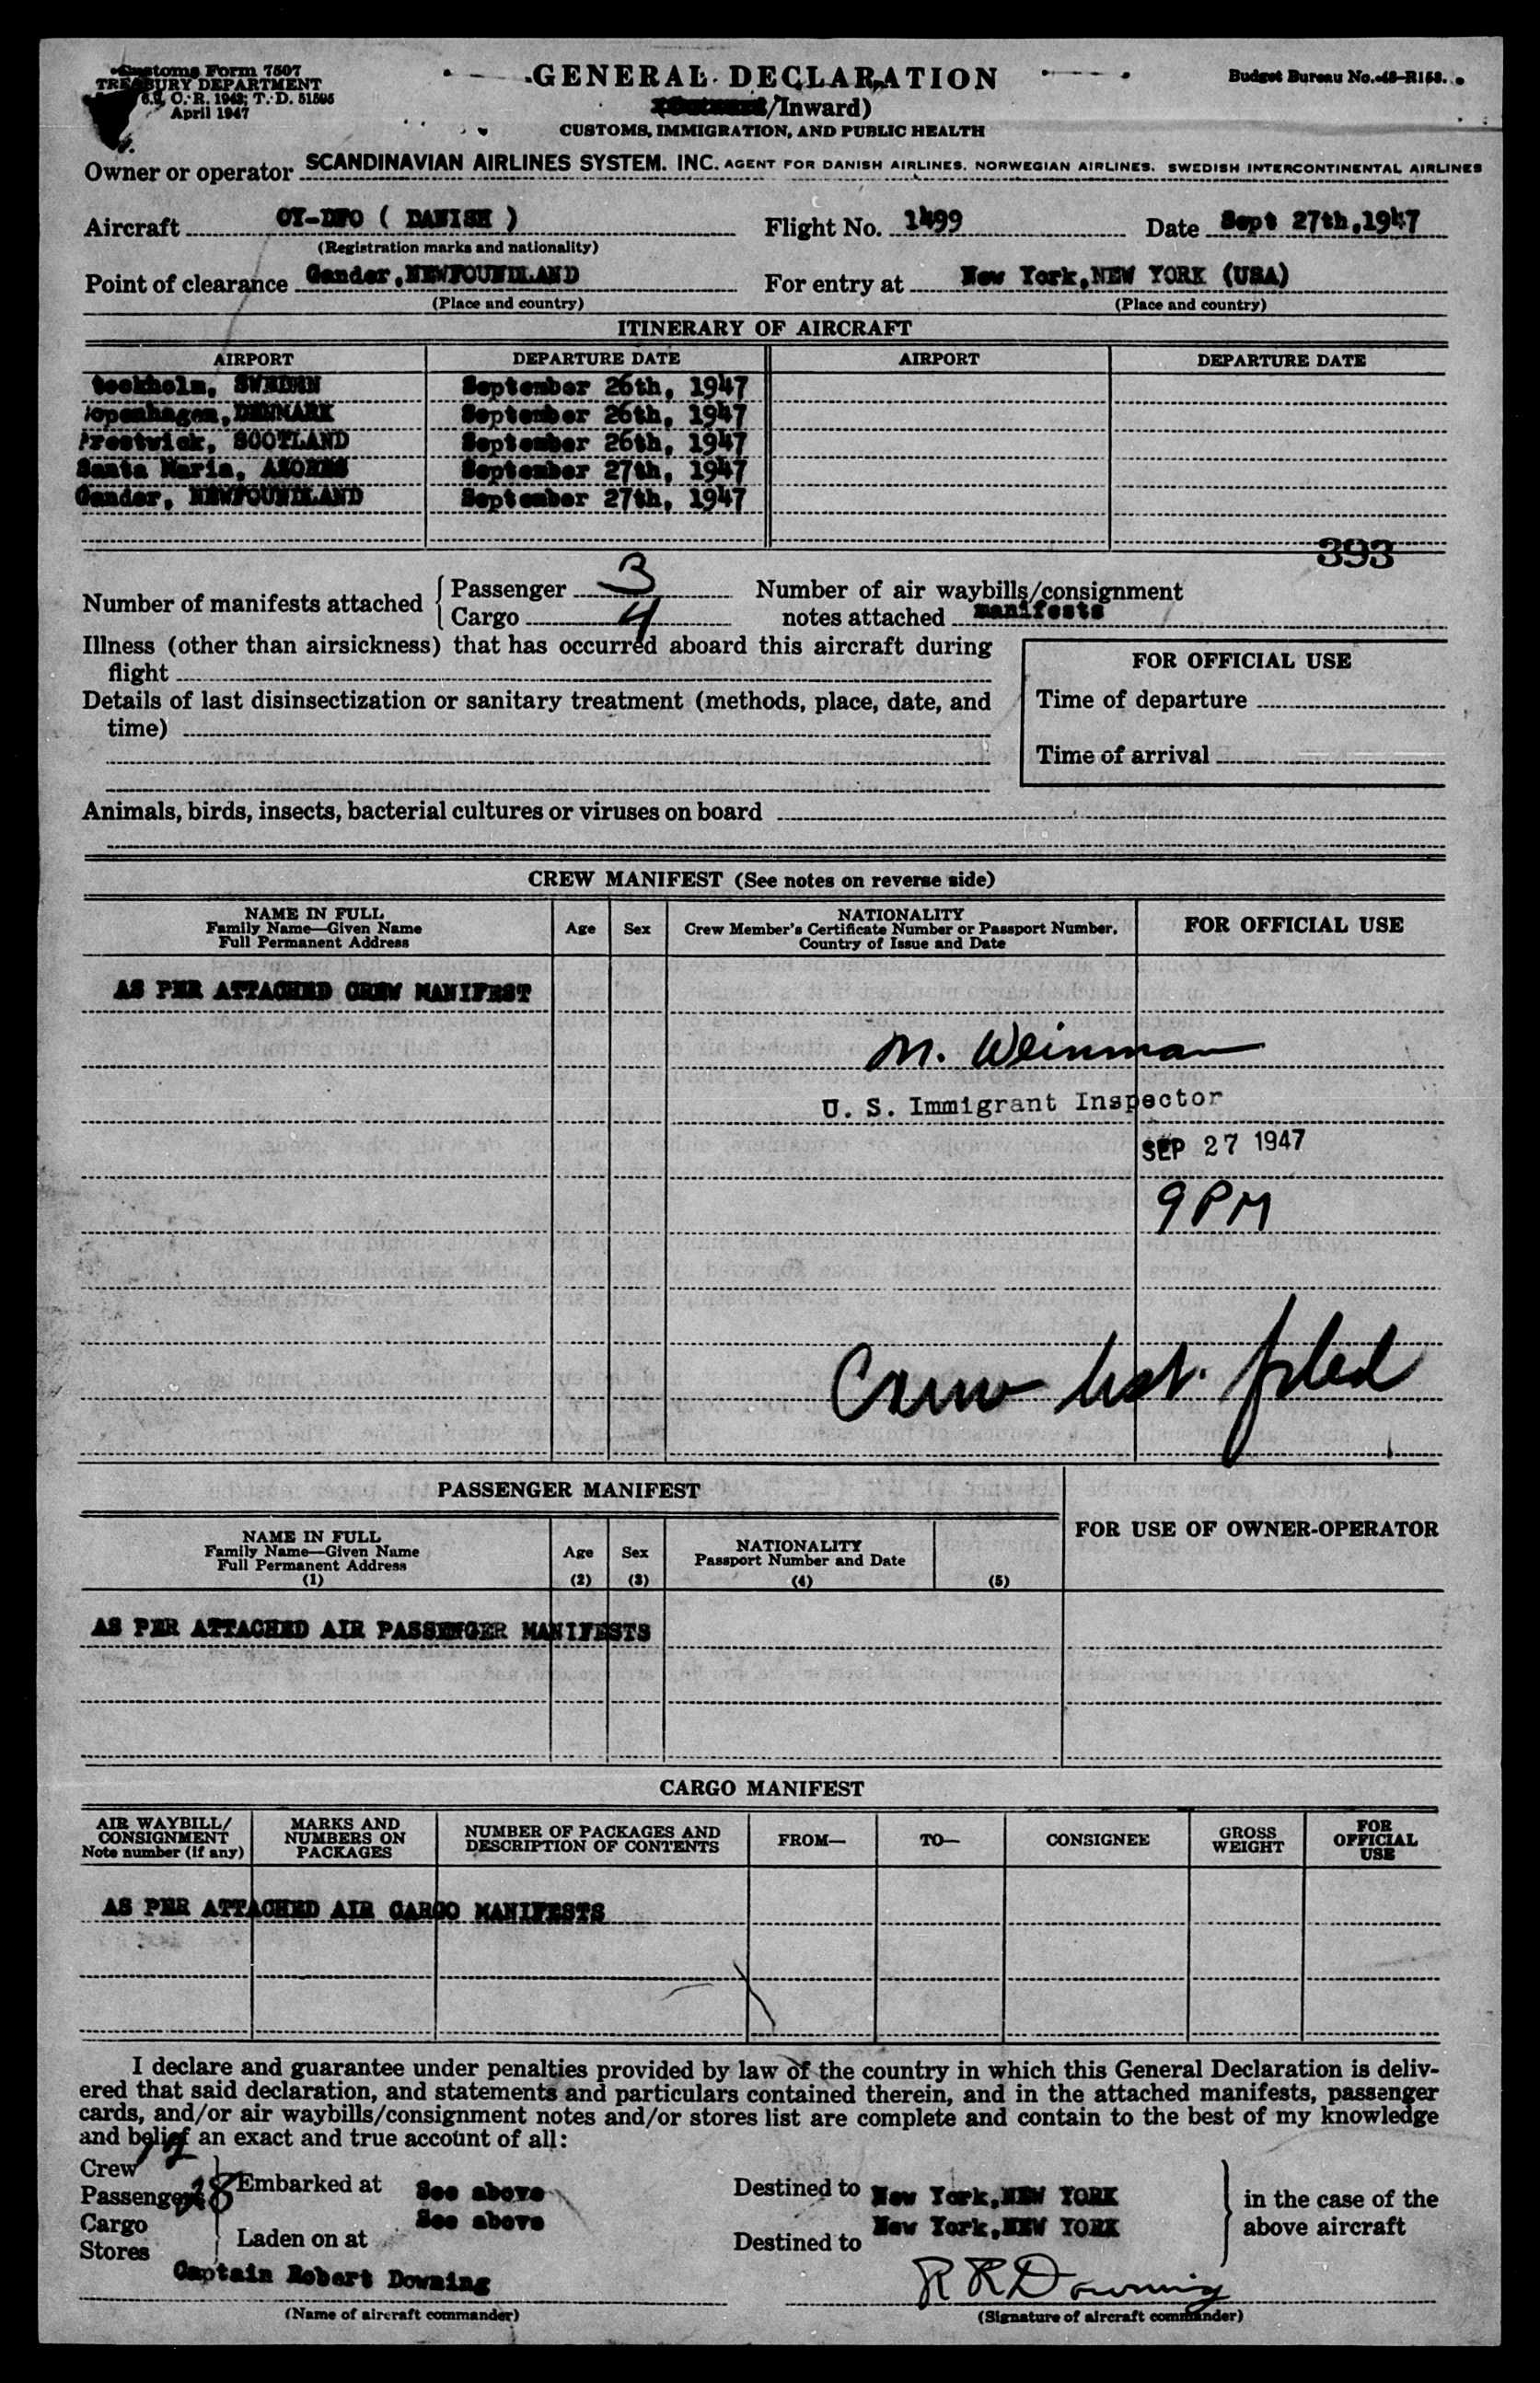 Customs Form 7507
TREASURY DEPARTMENT
6.9, C. R. 1943; T. D. 51595
April 1947
GENERAL DECLARATION
/Inward)
CUSTOMS, IMMIGRATION, AND PUBLIC HEALTH
Budget Bureau No. 48-R153.
Owner or operator SCANDINAVIAN AIRLINES SYSTEM. INC. AGENT FOR DANISH AIRLINES. NORWEGIAN AIRLINES. SWEDISH INTERCONTINENTAL AIRLINES
Aircraft OY-DFO ( DANISH ) Flight No. 1499 Date Sept 27th,1947
(Registration marks and nationality)
Point of clearance Gander,NEWFOUNDLAND For entry at New York,NEW YORK (USA)
(Place and country) (Place and country)
ITINERARY OF AIRCRAFT
AIRPORT DEPARTURE DATE AIRPORT DEPARTURE DATE
tockholm, SWEDEN September 26th, 1947
openhagen,DENMARK September 26th, 1947
Prestwick, SCOTLAND September 26th, 1947
Santa Maria, AZORES September 27th, 1947
Gander, NEWFOUNDLAND September 27th, 1947
393
Number of manifests attached { Passenger 3 Number of air waybills/consignment
Cargo 4 notes attached manifests
Illness (other than airsickness) that has occurred aboard this aircraft during
flight
Details of last disinsectization or sanitary treatment (methods, place, date, and
time)
FOR OFFICIAL USE
Time of departure
Time of arrival
Animals, birds, insects, bacterial cultures or viruses on board
CREW MANIFEST (See notes on reverse side)
NAME IN FULL
Family Name—Given Name
Full Permanent Address
Age
Sex
NATIONALITY
Crew Member's Certificate Number or Passport Number,
Country of Issue and Date
FOR OFFICIAL USE
AS PER ATTACHED CREW MANIFEST
M. Weinman
U. S. Immigrant Inspector
SEP 27 1947
9 PM
Crew list filed
PASSENGER MANIFEST
NAME IN FULL
Family Name—Given Name
Full Permanent Address
(1)
Age
(2)
Sex
(3)
NATIONALITY
Passport Number and Date
(4)
(5)
FOR USE OF OWNER-OPERATOR
AS PER ATTACHED AIR PASSENGER MANIFESTS
CARGO MANIFEST
AIR WAYBILL/
CONSIGNMENT
Note number (if any)
MARKS AND
NUMBERS ON
PACKAGES
NUMBER OF PACKAGES AND
DESCRIPTION OF CONTENTS
FROM—
TO—
CONSIGNEE
GROSS
WEIGHT
FOR
OFFICIAL
USE
AS PER ATTACHED AIR CARGO MANIFESTS
I declare and guarantee under penalties provided by law of the country in which this General Declaration is deliv-
ered that said declaration, and statements and particulars contained therein, and in the attached manifests, passenger
cards, and/or air waybills/consignment notes and/or stores list are complete and contain to the best of my knowledge
and belief an exact and true account of all:
Crew
Passengers 28 Embarked at See above Destined to New York,NEW YORK in the case of the
Cargo See above New York,NEW YORK above aircraft
Stores Laden on at Destined to
Captain Robert Downing R R Downing
(Name of aircraft commander) (Signature of aircraft commander)